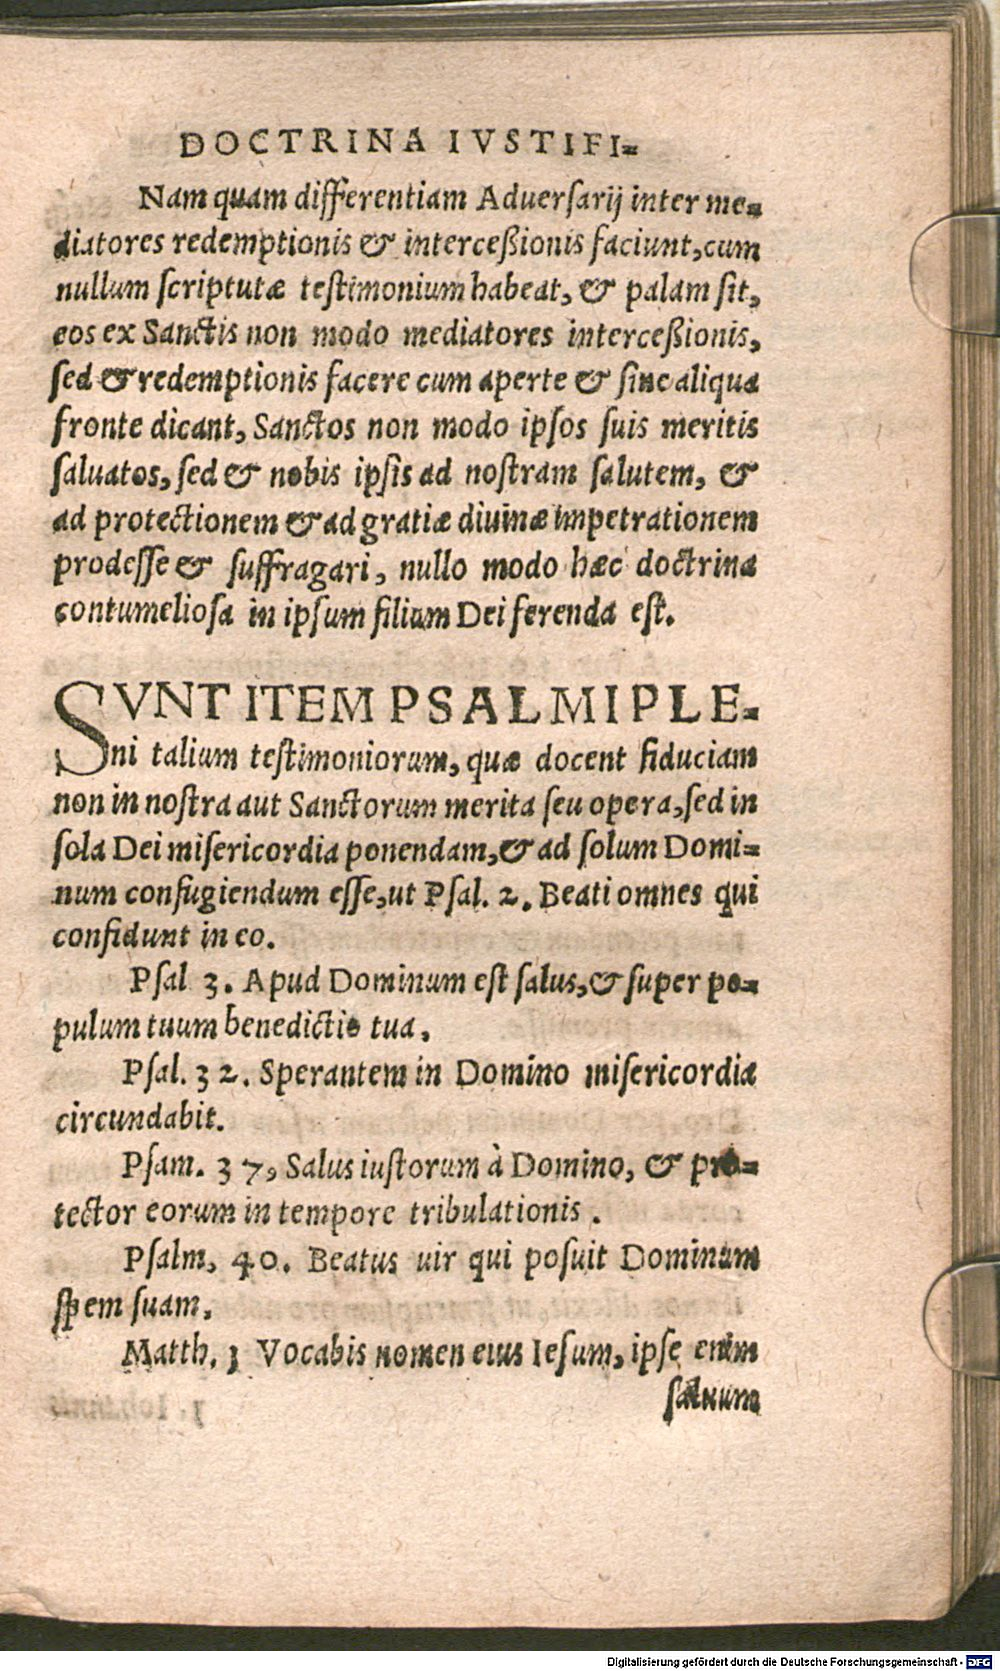 DOCTRINA IVSTIFI-
Nam quam differentiam Aduersarij inter me-
diatores redemptionis & interceßionis faciunt, cum
nullum scriptutæ testimonium habeat, & palam sit,
eos ex Sanctis non modo mediatores interceßionis,
sed & redemptionis facere cum aperte & sine aliqua
fronte dicant, Sanctos non modo ipsos suis meritis
saluatos, sed & nobis ipsis ad nostram salutem, &
ad protectionem & ad gratiæ diuinæ impetrationem
prodesse & suffragari, nullo modo hæc doctrina
contumeliosa in ipsum filium Dei ferenda est.
SVNT ITEM PSALMI PLE-
ni talium testimoniorum, quæ docent fiduciam
non in nostra aut Sanctorum merita seu opera, sed in
sola Dei misericordia ponendam, & ad solum Domi-
num confugiendum esse, ut Psal. 2. Beati omnes qui
confidunt in eo.
Psal 3. Apud Dominum est salus, & super po-
pulum tuum benedictio tua.
Psal. 32. Sperantem in Domino misericordia
circundabit.
Psam. 37, Salus iustorum à Domino, & pro-
tector eorum in tempore tribulationis.
Psalm, 40. Beatus uir qui posuit Dominum
spem suam.
Matth. 1 Vocabis nomen eius Iesum, ipse enim
saluum
Digitalisierung gefördert durch die Deutsche Forschungsgemeinschaft - DFG